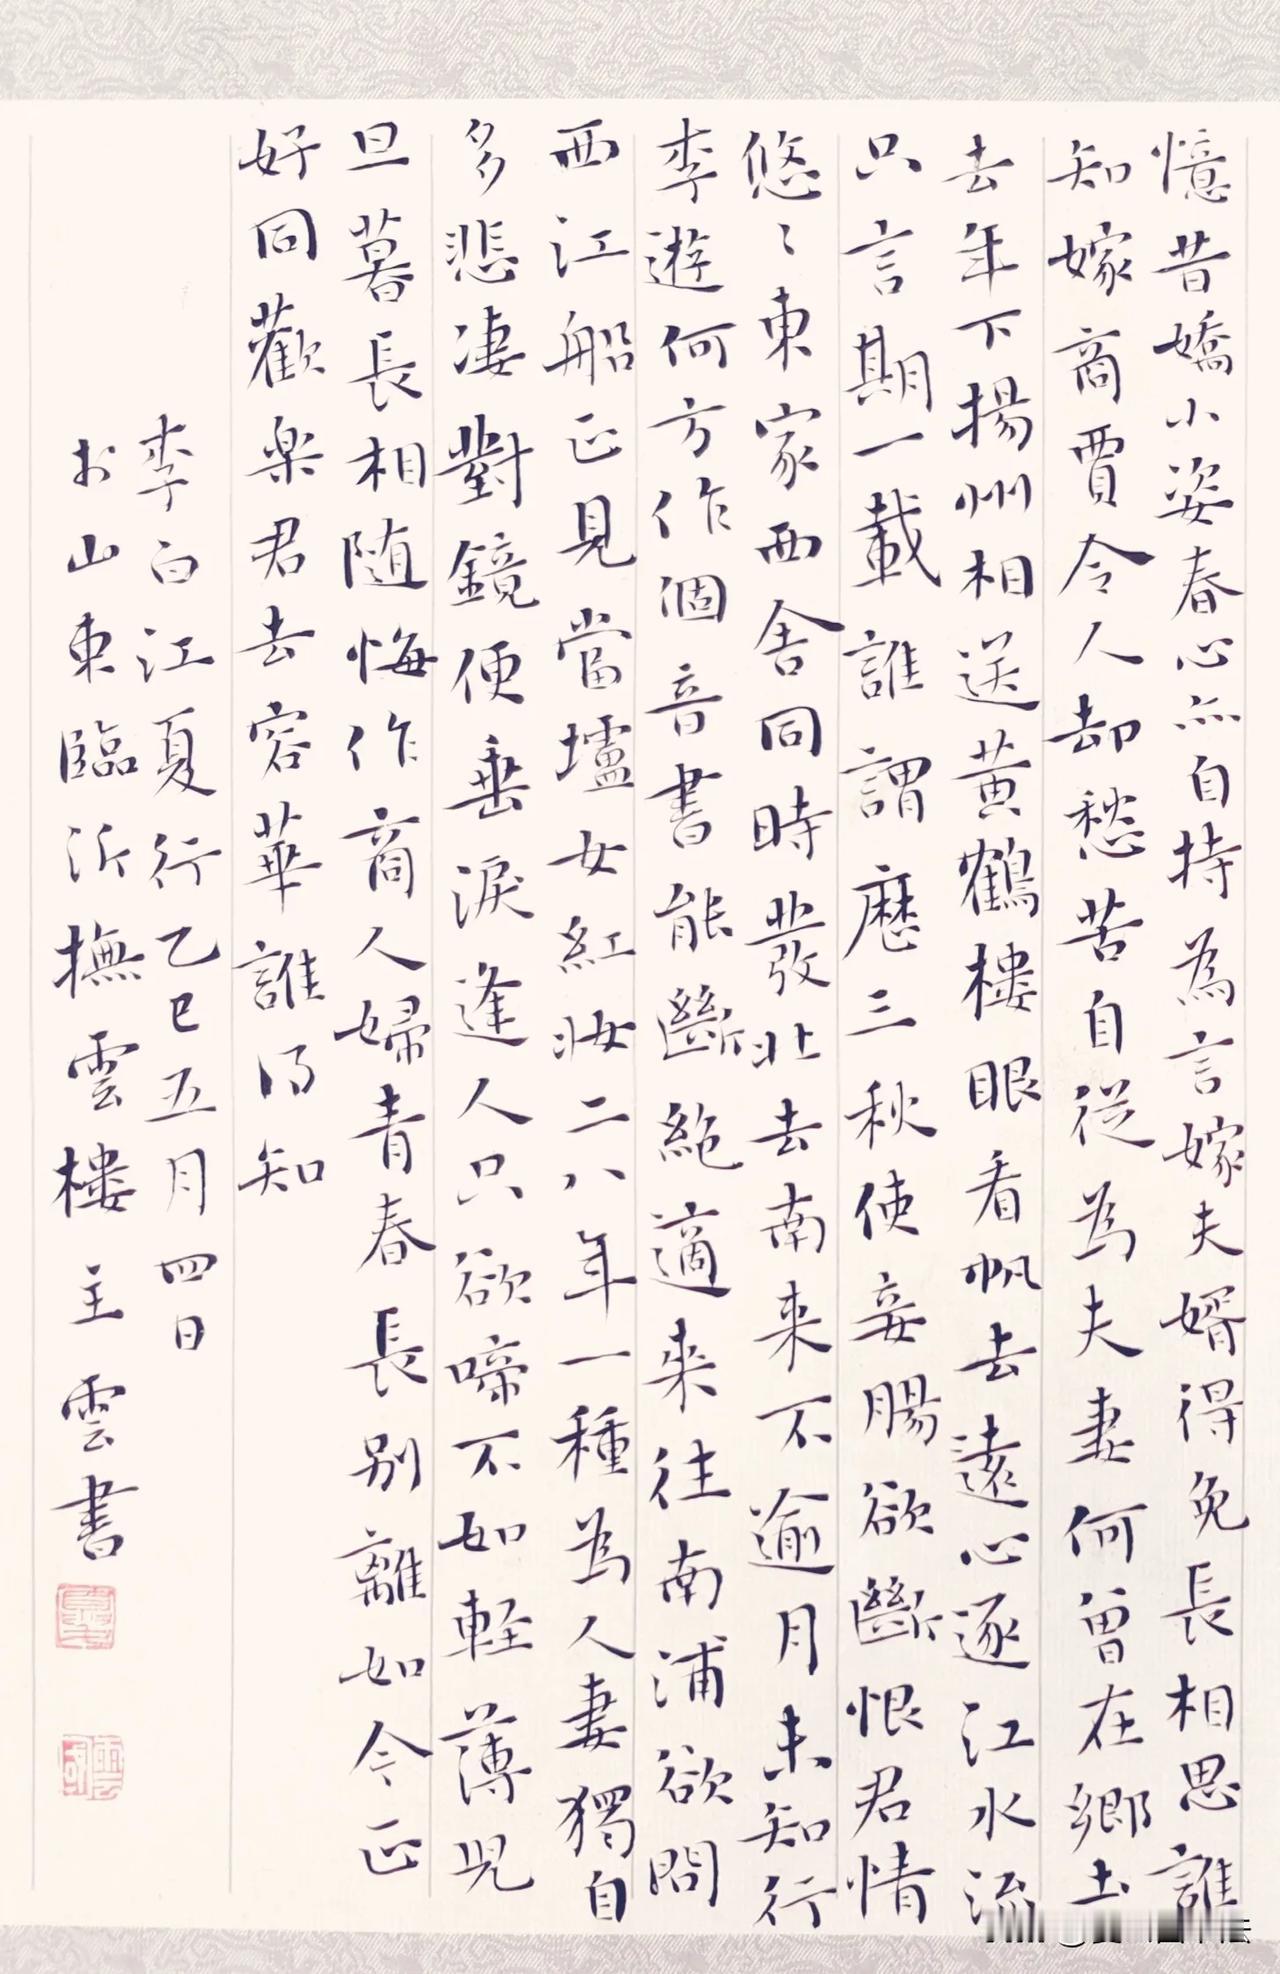 憶昔嬌小姿春心亦自持為言嫁夫婿得免長相思誰
知嫁商賈令人却愁苦自從為夫妻何曾在鄉土
去年下揚州相送黃鶴樓眼看帆去遠心逐江水流
只言期一載誰謂歷三秋使妾腸欲斷恨君情
悠〻東家西舍同時發北去南来不逾月未知行
李遊何方作個音書能斷絕適来往南浦欲問
西江船正見當壚女紅妝二八年一種為人妻獨自
多悲凄對鏡便垂淚逢人只欲啼不如輕薄兒
旦暮長相随悔作商人婦青春長別離如今正
好同歡樂君去容華誰得知
李白江夏行乙巳五月四日
於山東臨沂撫雲樓主雲書